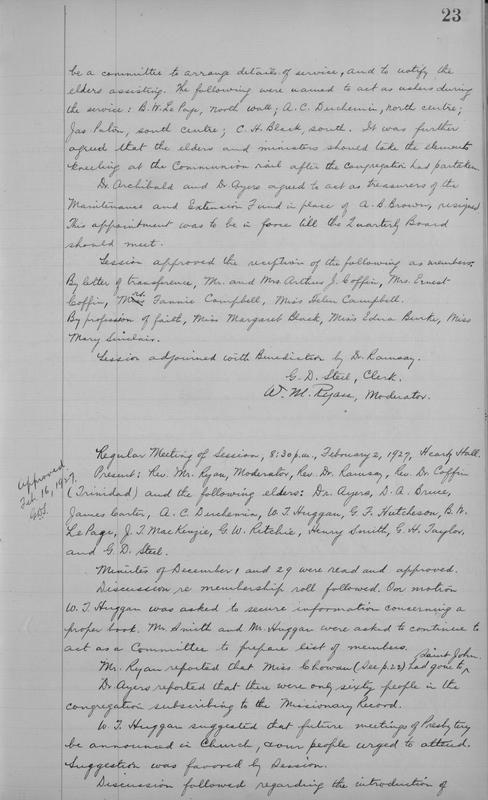 23
be a committee to arrange details of service, and to notify the
elders assisting. The following were named to act as ushers during
the service: B.W. Le Page, north wall; A.C. Duchemin, north centre;
Jas Paton, south centre; C.H. Black, south. It was further
agreed that the elders and ministers should take the elements
kneeling at the Communion rail after the congregation had partaken.
Dr. Archibald and Dr. Ayers agreed to act as treasurers of the
Maintenance and Extension Fund in place of A.B. Brown, resigned.
This appointment was to be in force till the Quarterly Board
should meet.
Session approved the reception of the following as members:
By letter of transference, Mr. and Mrs Arthur J. Coffin, Mrs. Ernest
Coffin, Mrs. Fannie Campbell, Miss Helen Campbell.
By profession of faith, Miss Margaret Black, Miss Edna Burke, Miss
Mary Sinclair.
Session adjourned with Benediction by Dr. Ramsay.
G.D. Steel, Clerk.
W. M. Ryan, Moderator.
Regular Meeting of Session, 8:30 p.m., February 2, 1927, Heartz Hall.
Approved
Feb. 16, 1927.
G.D.S.
Present: Rev. Mr. Ryan, Moderator, Rev. Dr. Ramsay, Rev. Dr. Coffin
(Trinidad) and the following elders: Dr. Ayers, D.A. Bruce,
James Carter, A.C. Duchemin, W.T. Huggan, G.F. Hutcheson, B.W.
Le Page, J.T. MacKenzie, G.W. Ritchie, Henry Smith, G.H. Taylor,
and G.D. Steel.
Minutes of December 1 and 29 were read and approved.
Discussion re membership roll followed. On motion
W.T. Huggan was asked to secure information concerning a
proper book. Mr. Smith and Mr. Huggan were asked to continue to
act as a Committee to prepare list of members.
Mr. Ryan reported that Miss Chowan (See p.22) had gone to Saint John.
Dr. Ayers reported that there were only sixty people in the
congregation subscribing to the Missionary Record.
W.T. Huggan suggested that future meetings of Presbytery
be announced in Church, & our people urged to attend.
Suggestion was favored by Session.
Discussion followed regarding the introduction of